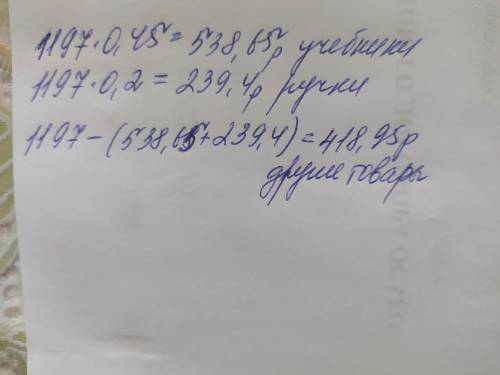 1197·0,45=538,65р учебники
1197·0,2=239,4р ручки
1197-(538,65+239,4)=418,95р
другие товары